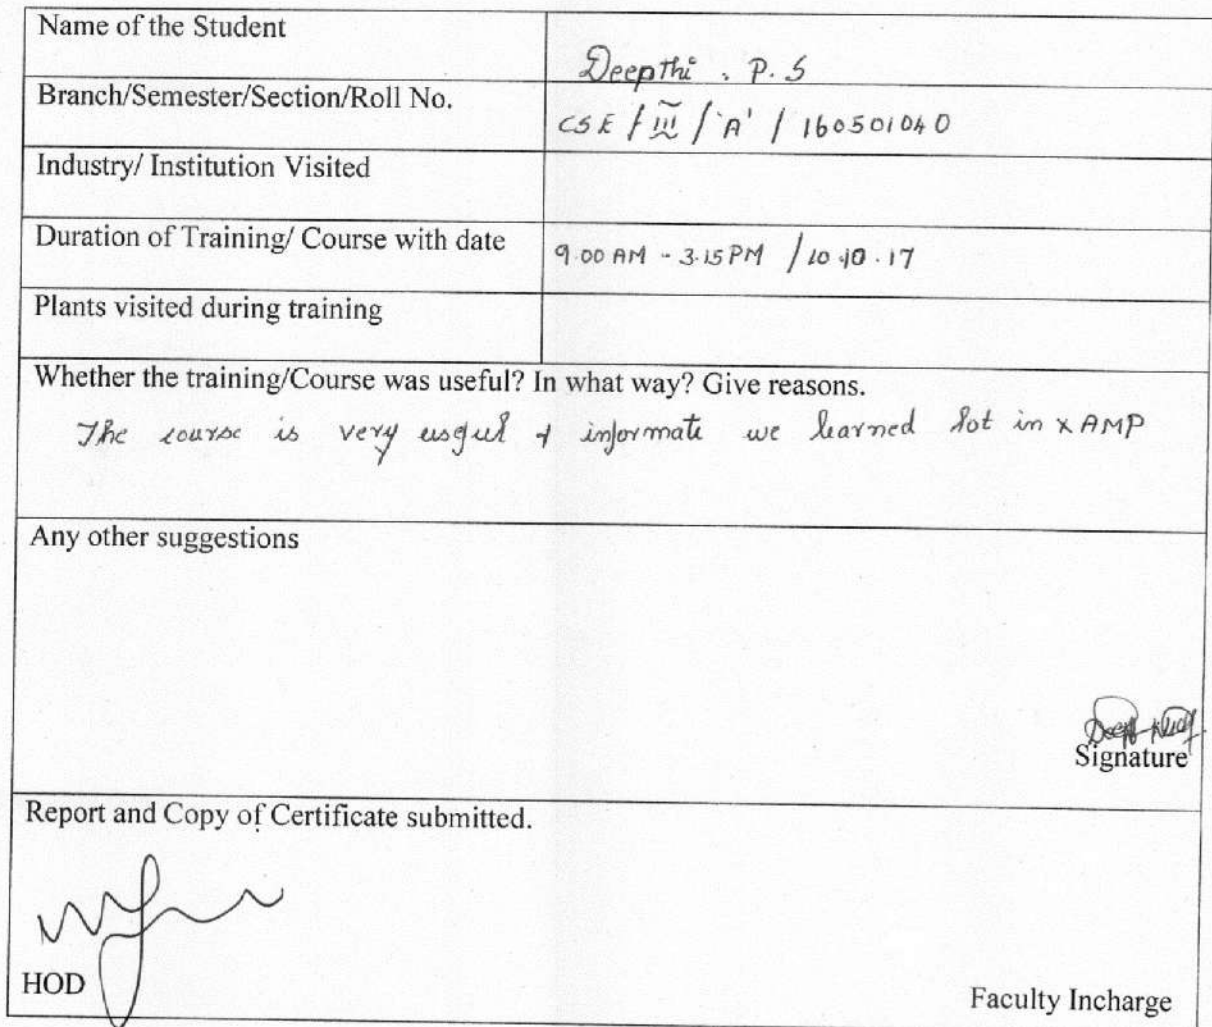 Name of the Student
Deepthi . P. S
Branch/Semester/Section/Roll No.
CSE / III / 'A' / 160501040
Industry/ Institution Visited
Duration of Training/ Course with date
9.00 AM - 3.15 PM / 10.10.17
Plants visited during training
Whether the training/Course was useful? In what way? Give reasons.
The course is very useful & informate we learned lot in XAMP
Any other suggestions
Signature
Report and Copy of Certificate submitted.
HOD
Faculty Incharge